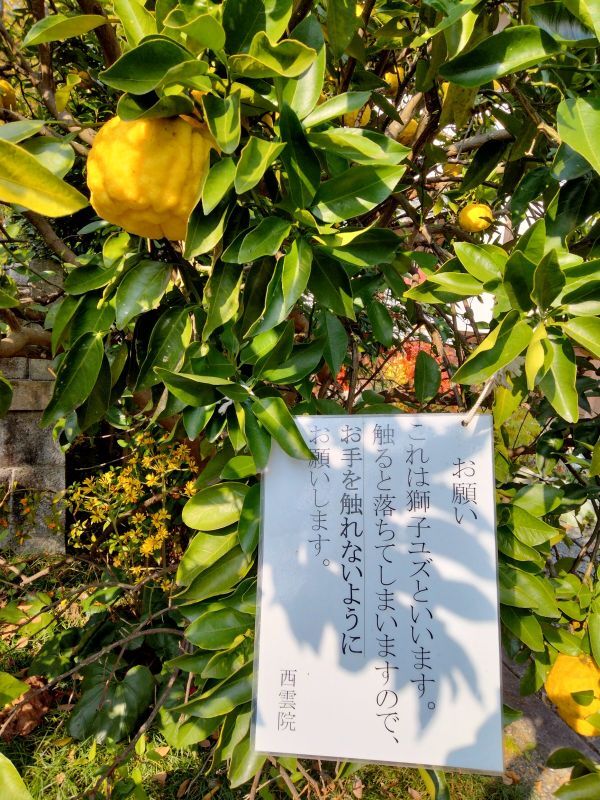 お願い
これは獅子ユズといいます。
触ると落ちてしまいますので、
お手を触れないように
お願いします。
西雲院